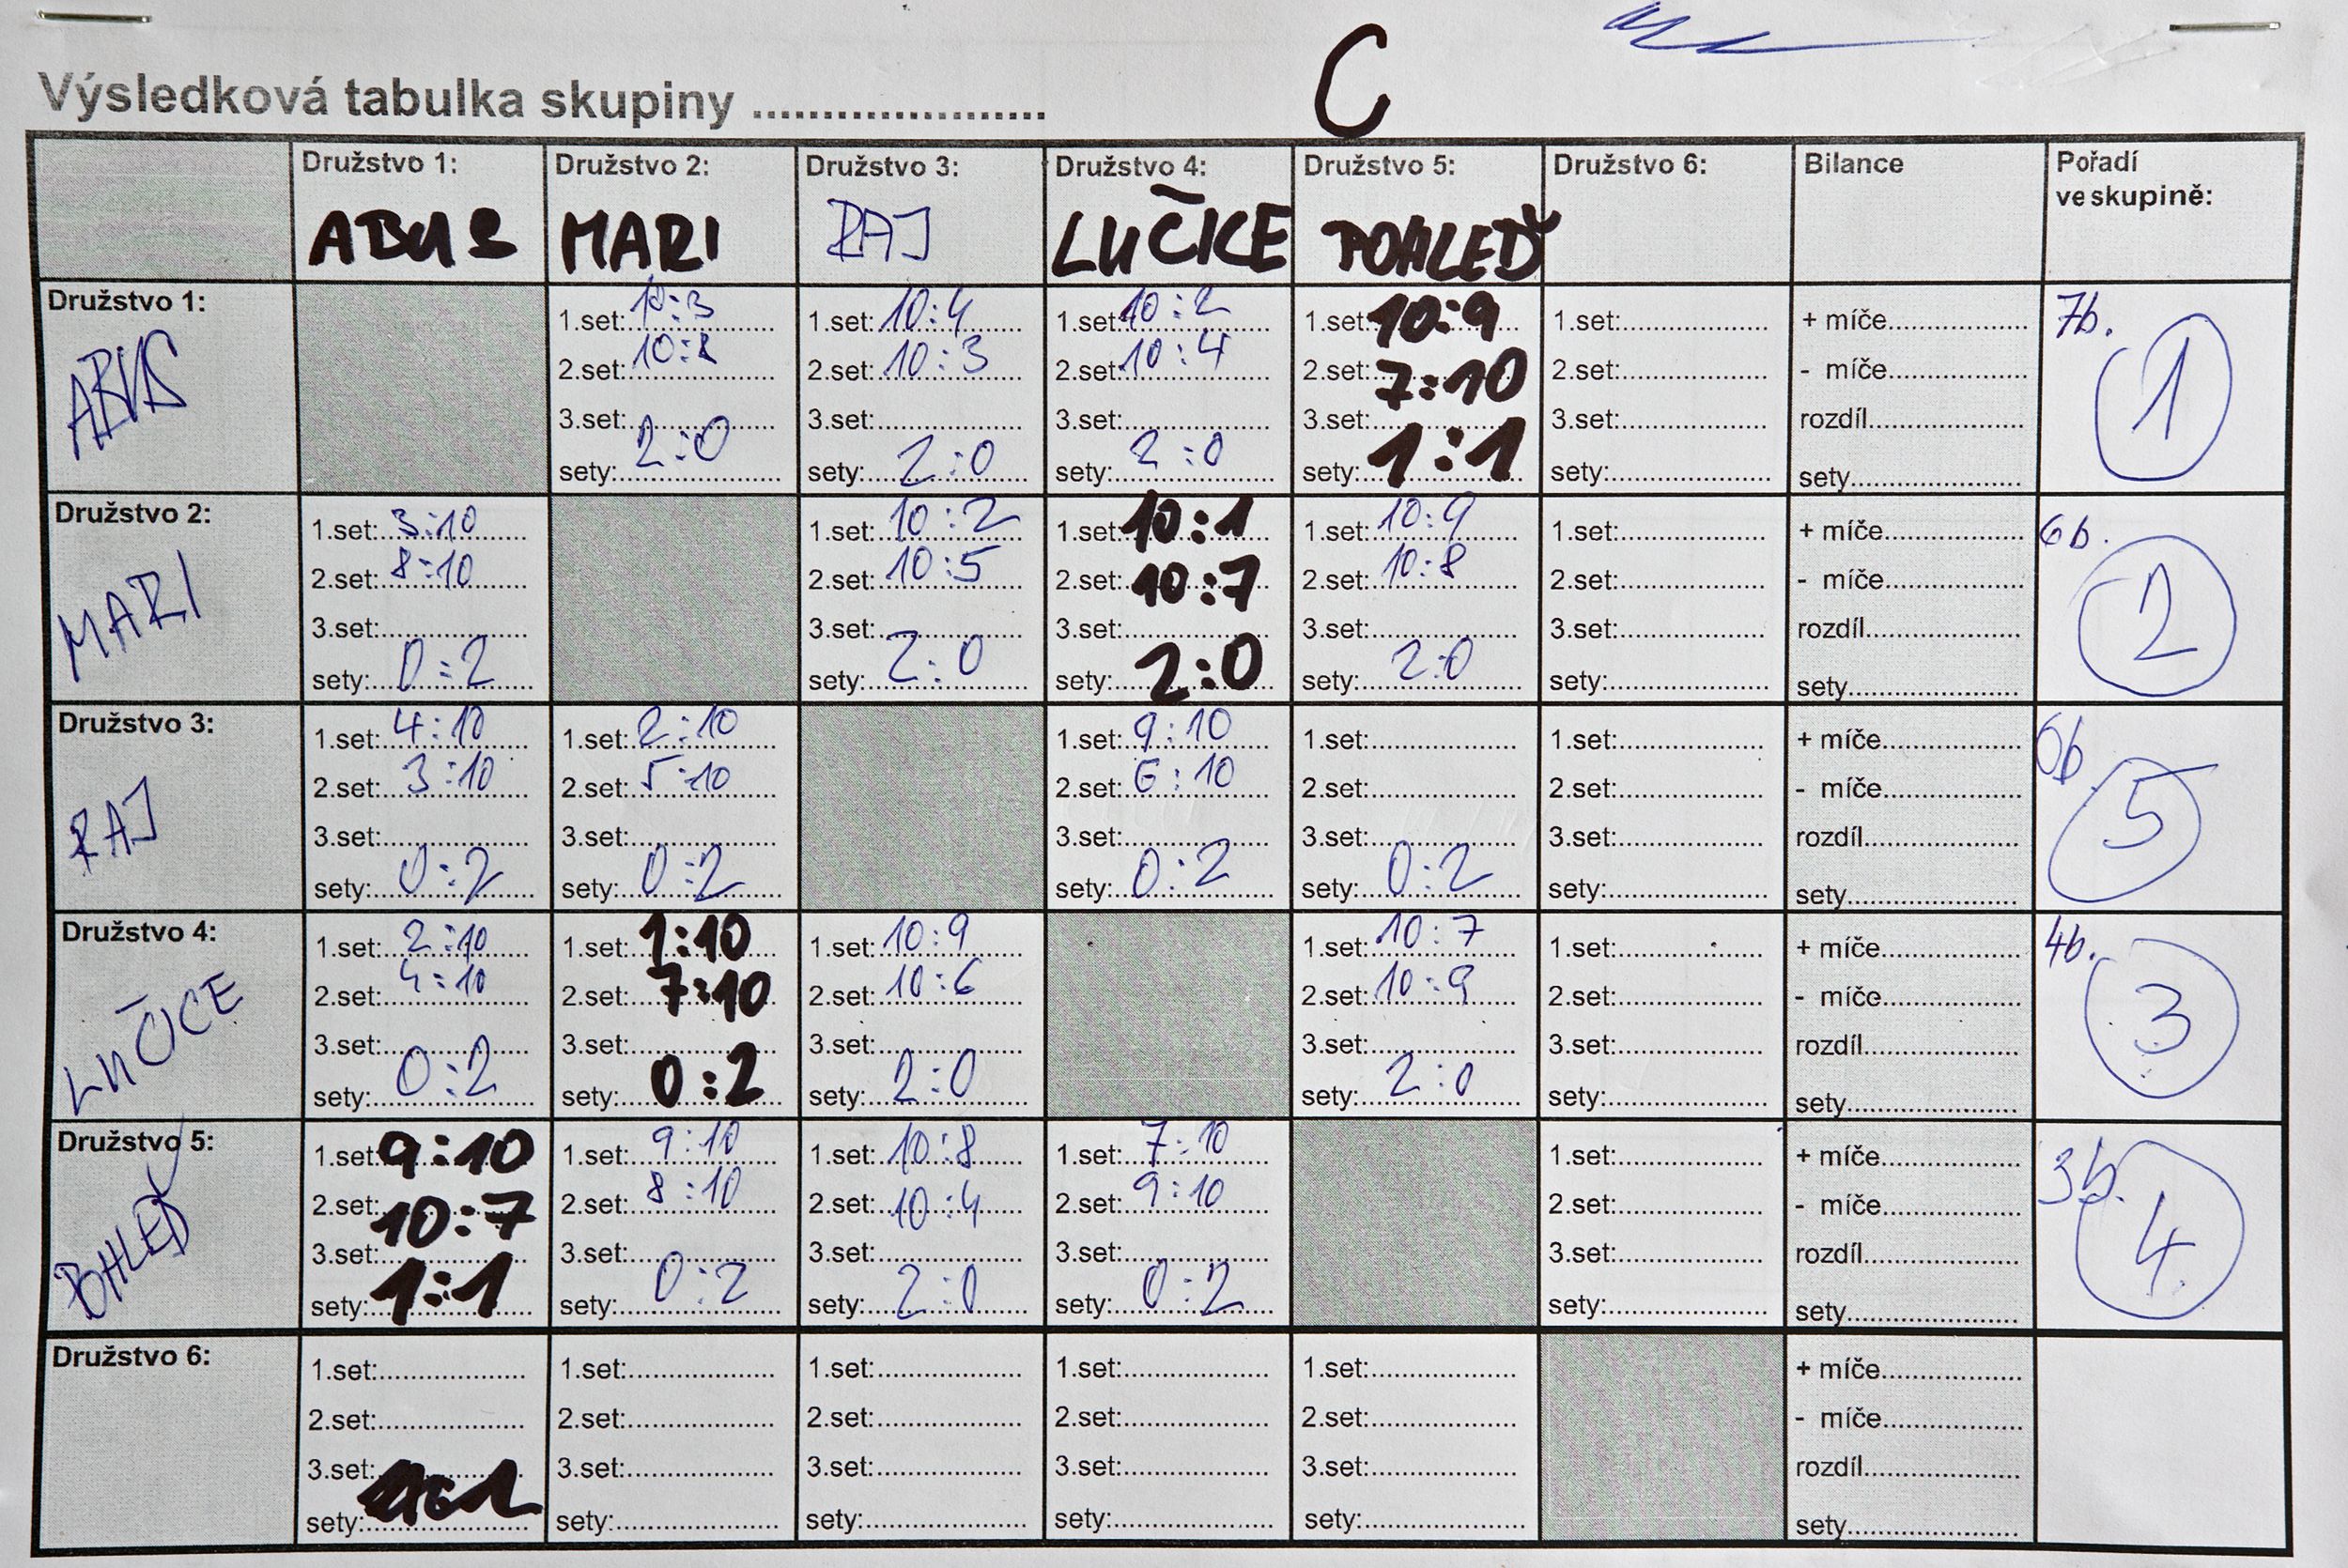 Výsledková tabulka skupiny ..................... C
Družstvo 1: Družstvo 2: Družstvo 3: Družstvo 4: Družstvo 5: Družstvo 6: Bilance Pořadí
ve skupině:
ABUS MARI RAJ LUČICE POHLEĎ
Družstvo 1: 1.set: 10:3 1.set: 10:4 1.set: 10:2 1.set: 10:9 1.set: + míče 7b.
ABUS 2.set: 10:8 2.set: 10:3 2.set: 10:4 2.set: 7:10 2.set: - míče 1
3.set: 3.set: 3.set: 3.set: 3.set: rozdíl
sety: 2:0 sety: 2:0 sety: 2:0 sety: 1:1 sety: sety
Družstvo 2: 1.set: 3:10 1.set: 10:2 1.set: 10:1 1.set: 10:9 1.set: + míče 6b.
MARI 2.set: 8:10 2.set: 10:5 2.set: 10:7 2.set: 10:8 2.set: - míče 2
3.set: 3.set: 3.set: 3.set: 3.set: rozdíl
sety: 0:2 sety: 2:0 sety: 2:0 sety: 2:0 sety: sety
Družstvo 3: 1.set: 4:10 1.set: 2:10 1.set: 9:10 1.set: 1.set: + míče 0b
RAJ 2.set: 3:10 2.set: 5:10 2.set: 6:10 2.set: 2.set: - míče 5
3.set: 3.set: 3.set: 3.set: 3.set: rozdíl
sety: 0:2 sety: 0:2 sety: 0:2 sety: 0:2 sety: sety
Družstvo 4: 1.set: 2:10 1.set: 1:10 1.set: 10:9 1.set: 10:7 1.set: + míče 4b.
LUČICE 2.set: 4:10 2.set: 7:10 2.set: 10:6 2.set: 10:9 2.set: - míče 3
3.set: 3.set: 3.set: 3.set: 3.set: rozdíl
sety: 0:2 sety: 0:2 sety: 2:0 sety: 2:0 sety: sety
Družstvo 5: 1.set: 9:10 1.set: 9:10 1.set: 10:8 1.set: 7:10 1.set: + míče 3b.
POHLEĎ 2.set: 10:7 2.set: 8:10 2.set: 10:4 2.set: 9:10 2.set: - míče 4
3.set: 3.set: 3.set: 3.set: 3.set: rozdíl
sety: 1:1 sety: 0:2 sety: 2:0 sety: 0:2 sety: sety
Družstvo 6: 1.set: 1.set: 1.set: 1.set: 1.set: + míče
2.set: 2.set: 2.set: 2.set: 2.set: - míče
3.set: 3.set: 3.set: 3.set: 3.set: rozdíl
sety: sety: sety: sety: sety: sety